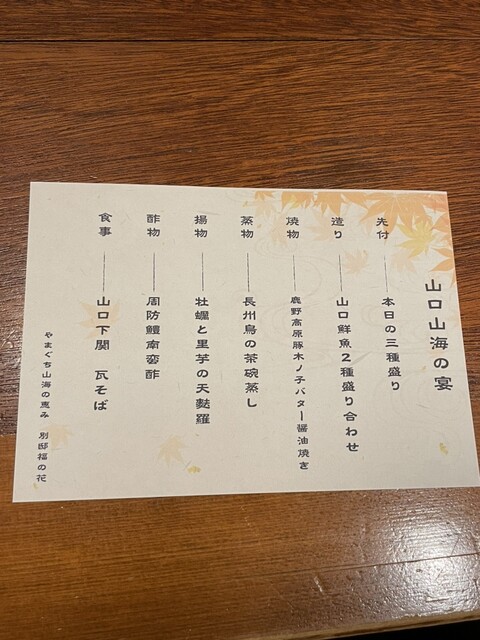 山口山海の宴
先付 ―― 本日の三種盛り
造り ―― 山口鮮魚2種盛り合わせ
焼物 ―― 鹿野高原豚木ノ子バター醤油焼き
蒸物 ―― 長州鳥の茶碗蒸し
揚物 ―― 牡蠣と里芋の天麩羅
酢物 ―― 周防鱧南蛮酢
食事 ―― 山口下関 瓦そば
やまぐち山海の恵み 別邸福の花